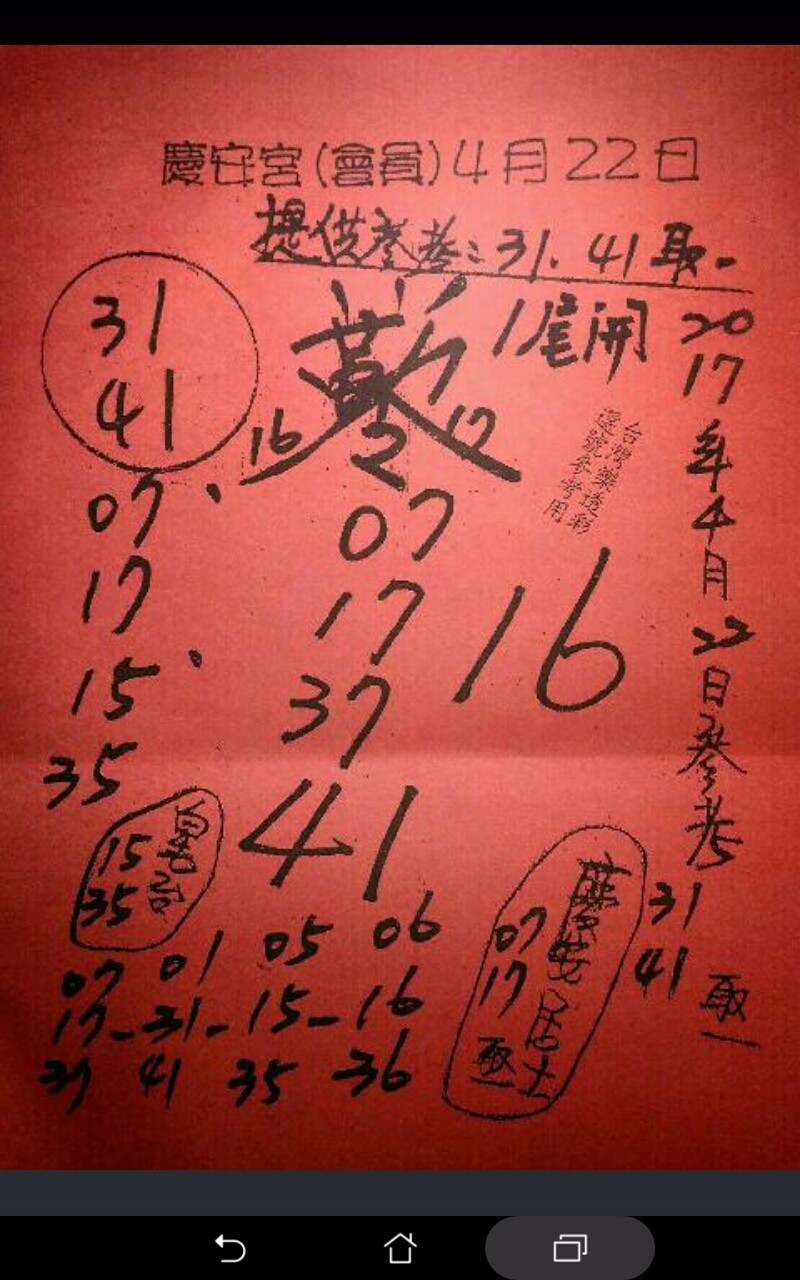 慶安宮(會員)4月22日
提供參考:31.41取一
1尾開
31
41
16
2
17
07
17
15
35
07
17
37
41
16
台灣樂透彩
選號參考用
2017年4月22日參考
31
41
取一
15
35
慶安居士
07
17
取一
07 01 05 06
17-31-15-16
37 41 35 36